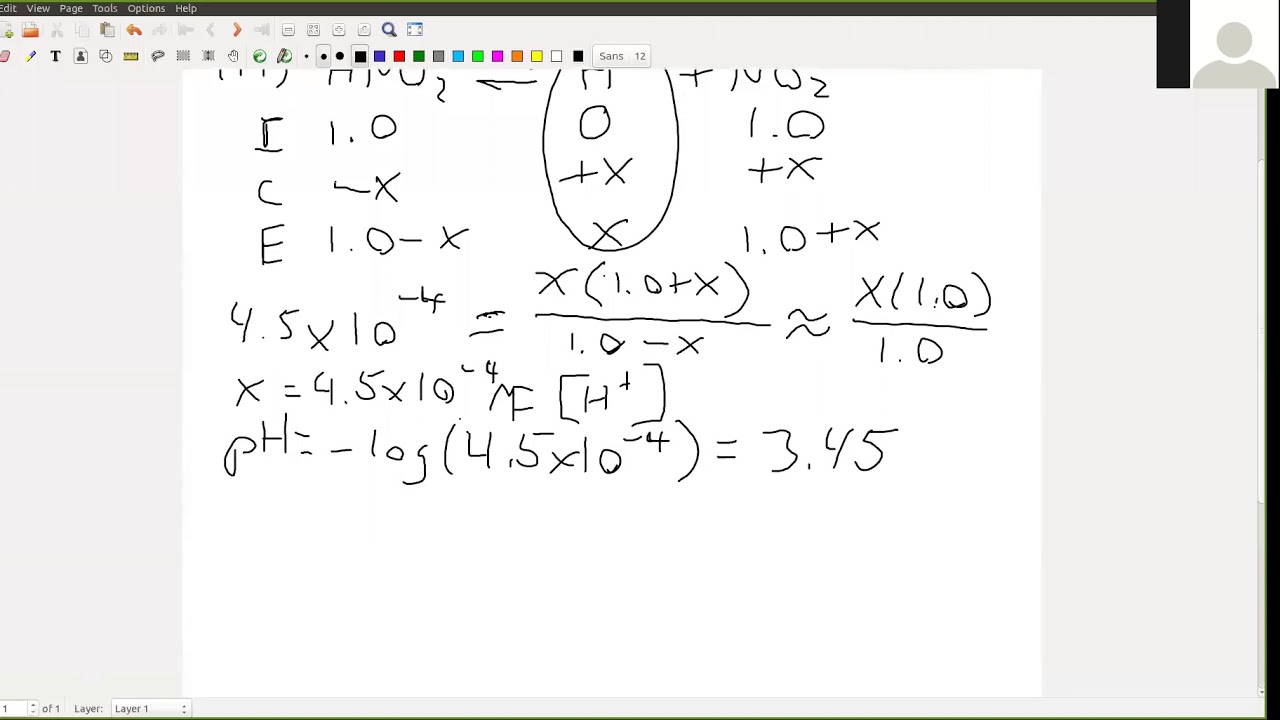 Edit View Page Tools Options Help
T Sans 12
HNO2 ⇌ H + NO2
I 1.0 0 1.0
C -x +x +x
E 1.0-x x 1.0+x
4.5x10^-4 = x(1.0+x)/1.0-x ≈ x(1.0)/1.0
x = 4.5x10^-4 M = [H+]
pH = -log(4.5x10^-4) = 3.45
1 of 1 Layer: Layer 1